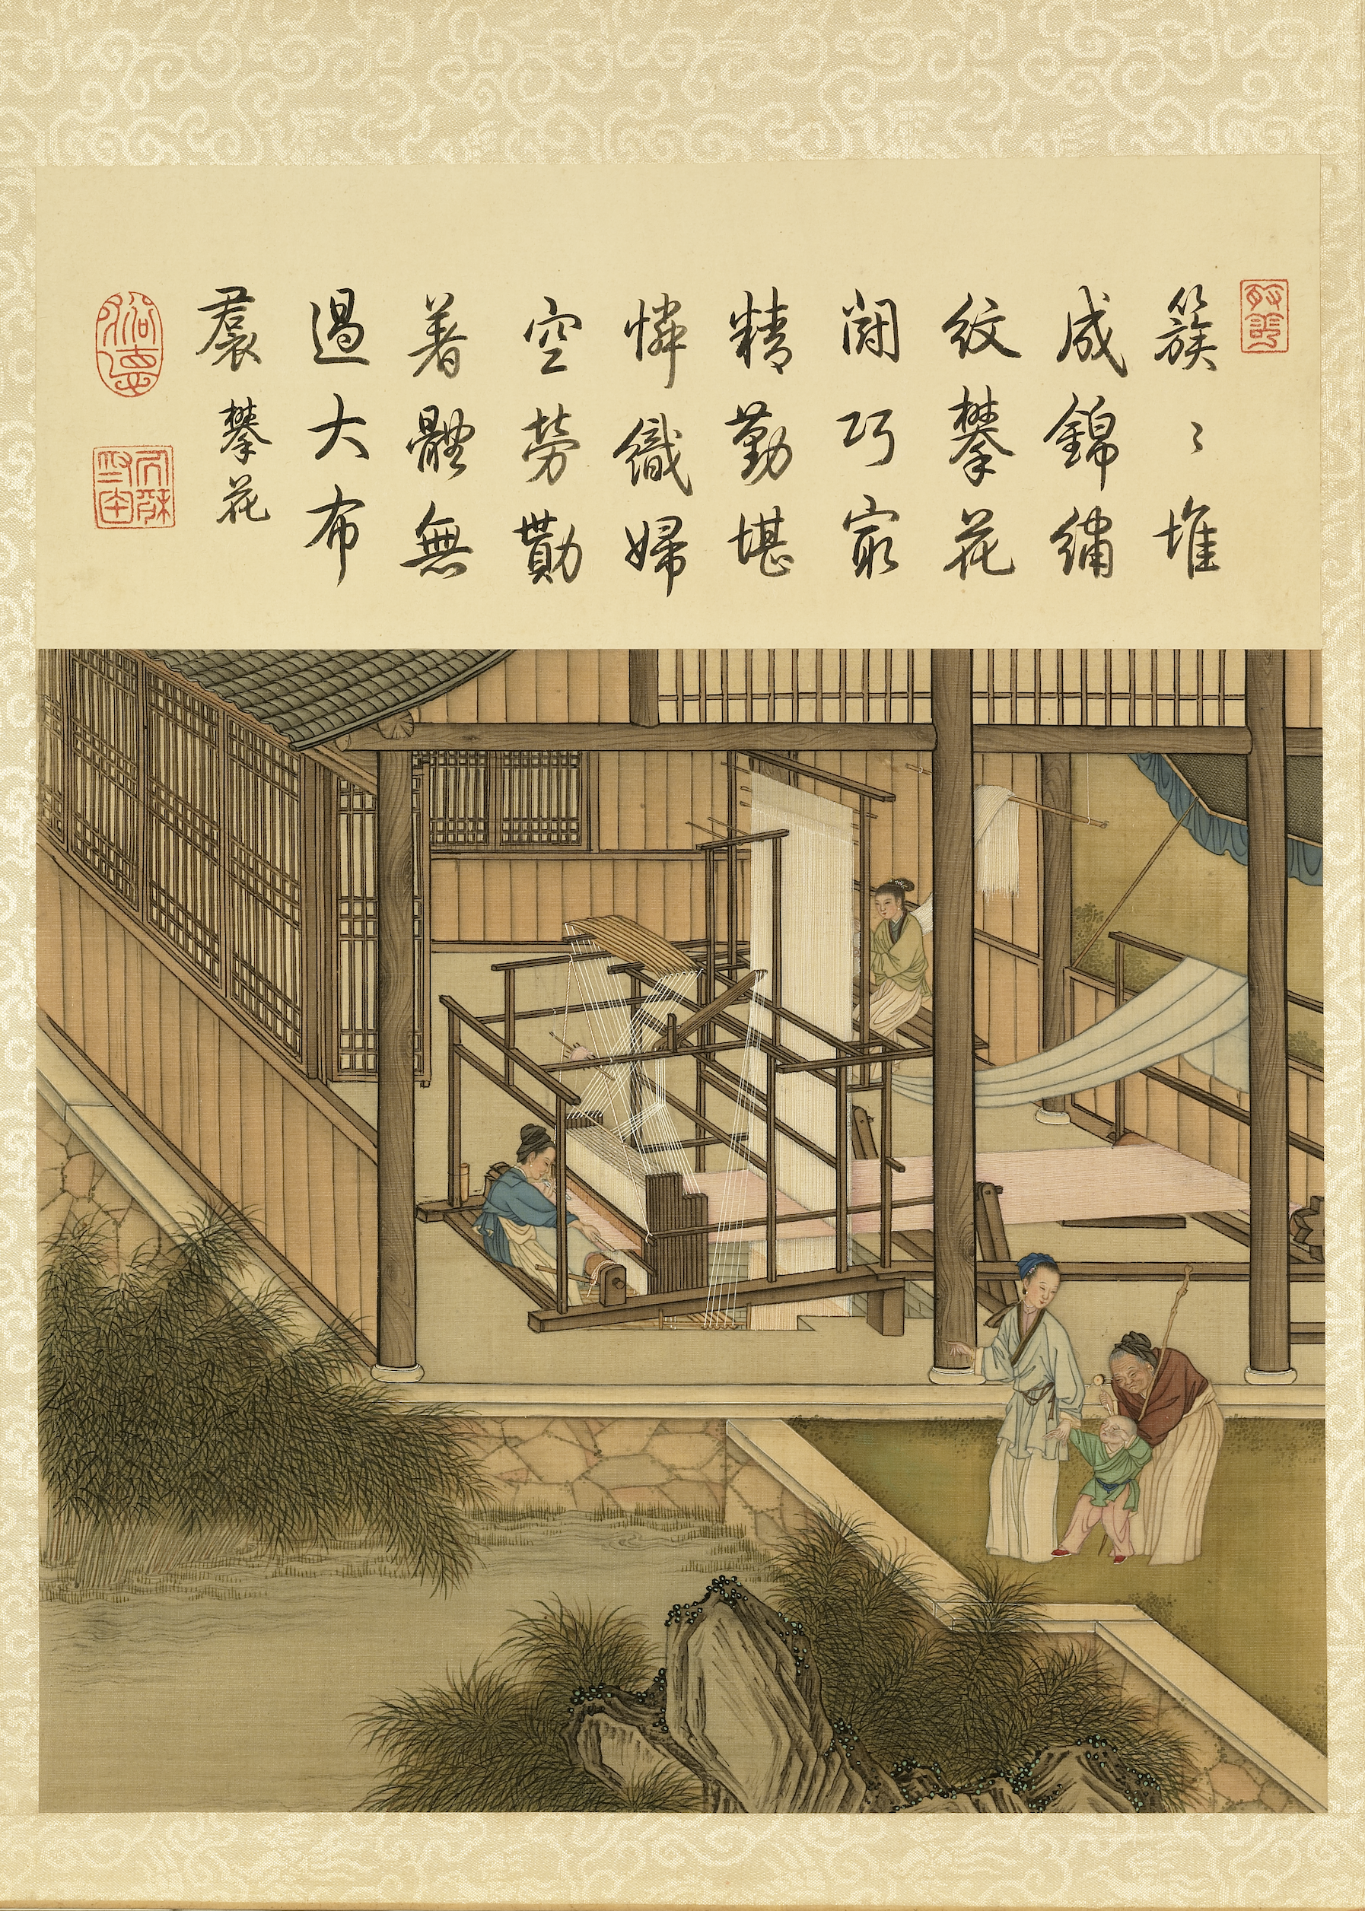 簇〻堆
成錦繡
紋攀花
鬪巧㝡
精勤堪
憐織婦
空勞勩
著體無
過大布
裠 攀花